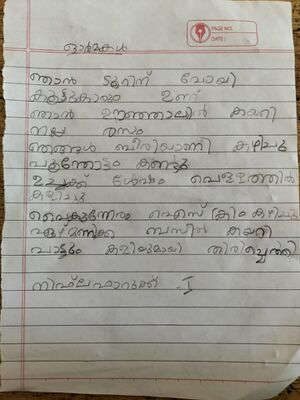 PAGE NO.
DATE:
ഓർമകൾ
ഞാൻ ടൂറിന് പോയി
കൂട്ടുകാരും ഉണ്ട്
ഞാൻ ഊഞ്ഞാലിൽ കയറി
നല്ല രസം
ഞങ്ങൾ ബിരിയാണി കഴിച്ചു
പൂന്തോട്ടം കണ്ടു
ഉച്ചക്ക് ശേഷം വെള്ളത്തിൽ
കളിച്ചു
വൈകുന്നേരം ഐസ് ക്രിം കഴിച്ചു
ഏഴ്മണിക്ക് ബസിൽ കയറി
പാട്ടും കളിയുമായി തിരിച്ചെത്തി
നിഫ്ലഫാറൂക്ക് . I